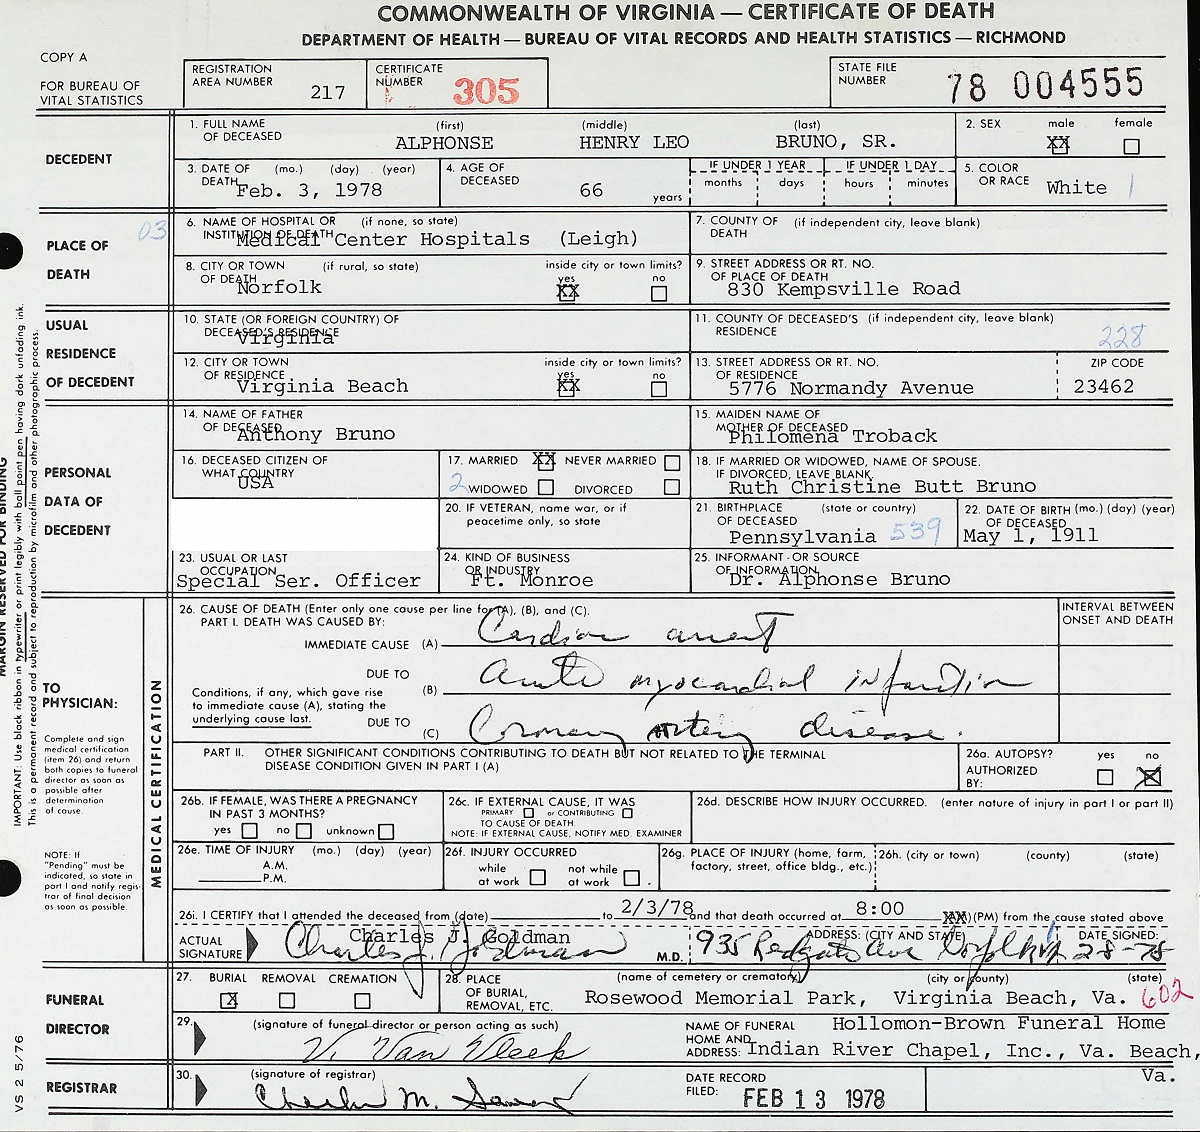 COMMONWEALTH OF VIRGINIA — CERTIFICATE OF DEATH
DEPARTMENT OF HEALTH — BUREAU OF VITAL RECORDS AND HEALTH STATISTICS — RICHMOND
COPY A
FOR BUREAU OF
VITAL STATISTICS
REGISTRATION
AREA NUMBER 217
CERTIFICATE
NUMBER 305
STATE FILE
NUMBER 78 004555
DECEDENT
1. FULL NAME OF DECEASED (first) (middle) (last)
ALPHONSE HENRY LEO BRUNO, SR.
2. SEX male XX female
3. DATE OF DEATH (mo.) (day) (year)
Feb. 3, 1978
4. AGE OF DECEASED
66 years
IF UNDER 1 YEAR IF UNDER 1 DAY
months days hours minutes
5. COLOR OR RACE White
PLACE OF DEATH
03
6. NAME OF HOSPITAL OR INSTITUTION OF DEATH (if none, so state)
Medical Center Hospitals (Leigh)
7. COUNTY OF DEATH (if independent city, leave blank)
8. CITY OR TOWN OF DEATH (if rural, so state) inside city or town limits? yes XX no
Norfolk
9. STREET ADDRESS OR RT. NO. OF PLACE OF DEATH
830 Kempsville Road
USUAL RESIDENCE OF DECEDENT
10. STATE (OR FOREIGN COUNTRY) OF DECEASED'S RESIDENCE
Virginia
11. COUNTY OF DECEASED'S RESIDENCE (if independent city, leave blank)
228
12. CITY OR TOWN OF RESIDENCE inside city or town limits? yes XX no
Virginia Beach
13. STREET ADDRESS OR RT. NO. OF RESIDENCE ZIP CODE
5776 Normandy Avenue 23462
PERSONAL DATA OF DECEDENT
14. NAME OF FATHER OF DECEASED
Anthony Bruno
15. MAIDEN NAME OF MOTHER OF DECEASED
Philomena Troback
16. DECEASED CITIZEN OF WHAT COUNTRY
USA
17. MARRIED XX NEVER MARRIED
2 WIDOWED DIVORCED
18. IF MARRIED OR WIDOWED, NAME OF SPOUSE. IF DIVORCED, LEAVE BLANK
Ruth Christine Butt Bruno
20. IF VETERAN, name war, or if peacetime only, so state
21. BIRTHPLACE OF DECEASED (state or country)
Pennsylvania 539
22. DATE OF BIRTH OF DECEASED (mo.) (day) (year)
May 1, 1911
23. USUAL OR LAST OCCUPATION
Special Ser. Officer
24. KIND OF BUSINESS OR INDUSTRY
Ft. Monroe
25. INFORMANT - OR SOURCE OF INFORMATION
Dr. Alphonse Bruno
MARGIN RESERVED FOR BINDING
IMPORTANT: Use black ribbon in typewriter or print legibly with ball point pen having dark unfading ink.
This is a permanent record and subject to reproduction by microfilm and other photographic process.
TO PHYSICIAN:
Complete and sign
medical certification
(item 26) and return
both copies to funeral
director as soon as
possible after
determination
of cause.
NOTE: If
"Pending" must be
indicated, so state in
part I and notify regis-
trar of final decision
as soon as possible.
MEDICAL CERTIFICATION
26. CAUSE OF DEATH (Enter only one cause per line for (A), (B), and (C).
PART I. DEATH WAS CAUSED BY:
INTERVAL BETWEEN
ONSET AND DEATH
IMMEDIATE CAUSE (A) Cardiac arrest
DUE TO
(B) Acute myocardial infarction
Conditions, if any, which gave rise
to immediate cause (A), stating the
underlying cause last.
DUE TO
(C) Coronary artery disease.
PART II. OTHER SIGNIFICANT CONDITIONS CONTRIBUTING TO DEATH BUT NOT RELATED TO THE TERMINAL
DISEASE CONDITION GIVEN IN PART I (A)
26a. AUTOPSY? yes no X
AUTHORIZED BY:
26b. IF FEMALE, WAS THERE A PREGNANCY
IN PAST 3 MONTHS?
yes no unknown
26c. IF EXTERNAL CAUSE, IT WAS
PRIMARY or CONTRIBUTING
TO CAUSE OF DEATH.
NOTE: IF EXTERNAL CAUSE, NOTIFY MED. EXAMINER
26d. DESCRIBE HOW INJURY OCCURRED. (enter nature of injury in part I or part II)
26e. TIME OF INJURY (mo.) (day) (year)
A.M.
P.M.
26f. INJURY OCCURRED
while at work not while at work
26g. PLACE OF INJURY (home, farm,
factory, street, office bldg., etc.)
26h. (city or town) (county) (state)
26i. I CERTIFY that I attended the deceased from (date) to 2/3/78 and that death occurred at 8:00 XX (PM) from the cause stated above
ACTUAL SIGNATURE Charles J. Goldman
Charles J. Goldman M.D.
ADDRESS: (CITY AND STATE) DATE SIGNED:
935 Redgate Ave
27. BURIAL X REMOVAL CREMATION
28. PLACE OF BURIAL, REMOVAL, ETC. (name of cemetery or crematory) (city or county) (state)
Rosewood Memorial Park, Virginia Beach, Va. 602
FUNERAL DIRECTOR
29. (signature of funeral director or person acting as such)
V. Van Vleek
NAME OF FUNERAL HOME AND ADDRESS:
Hollomon-Brown Funeral Home
Indian River Chapel, Inc., Va. Beach,
Va.
REGISTRAR
30. (signature of registrar)
DATE RECORD FILED: FEB 13 1978
VS 2 5/76